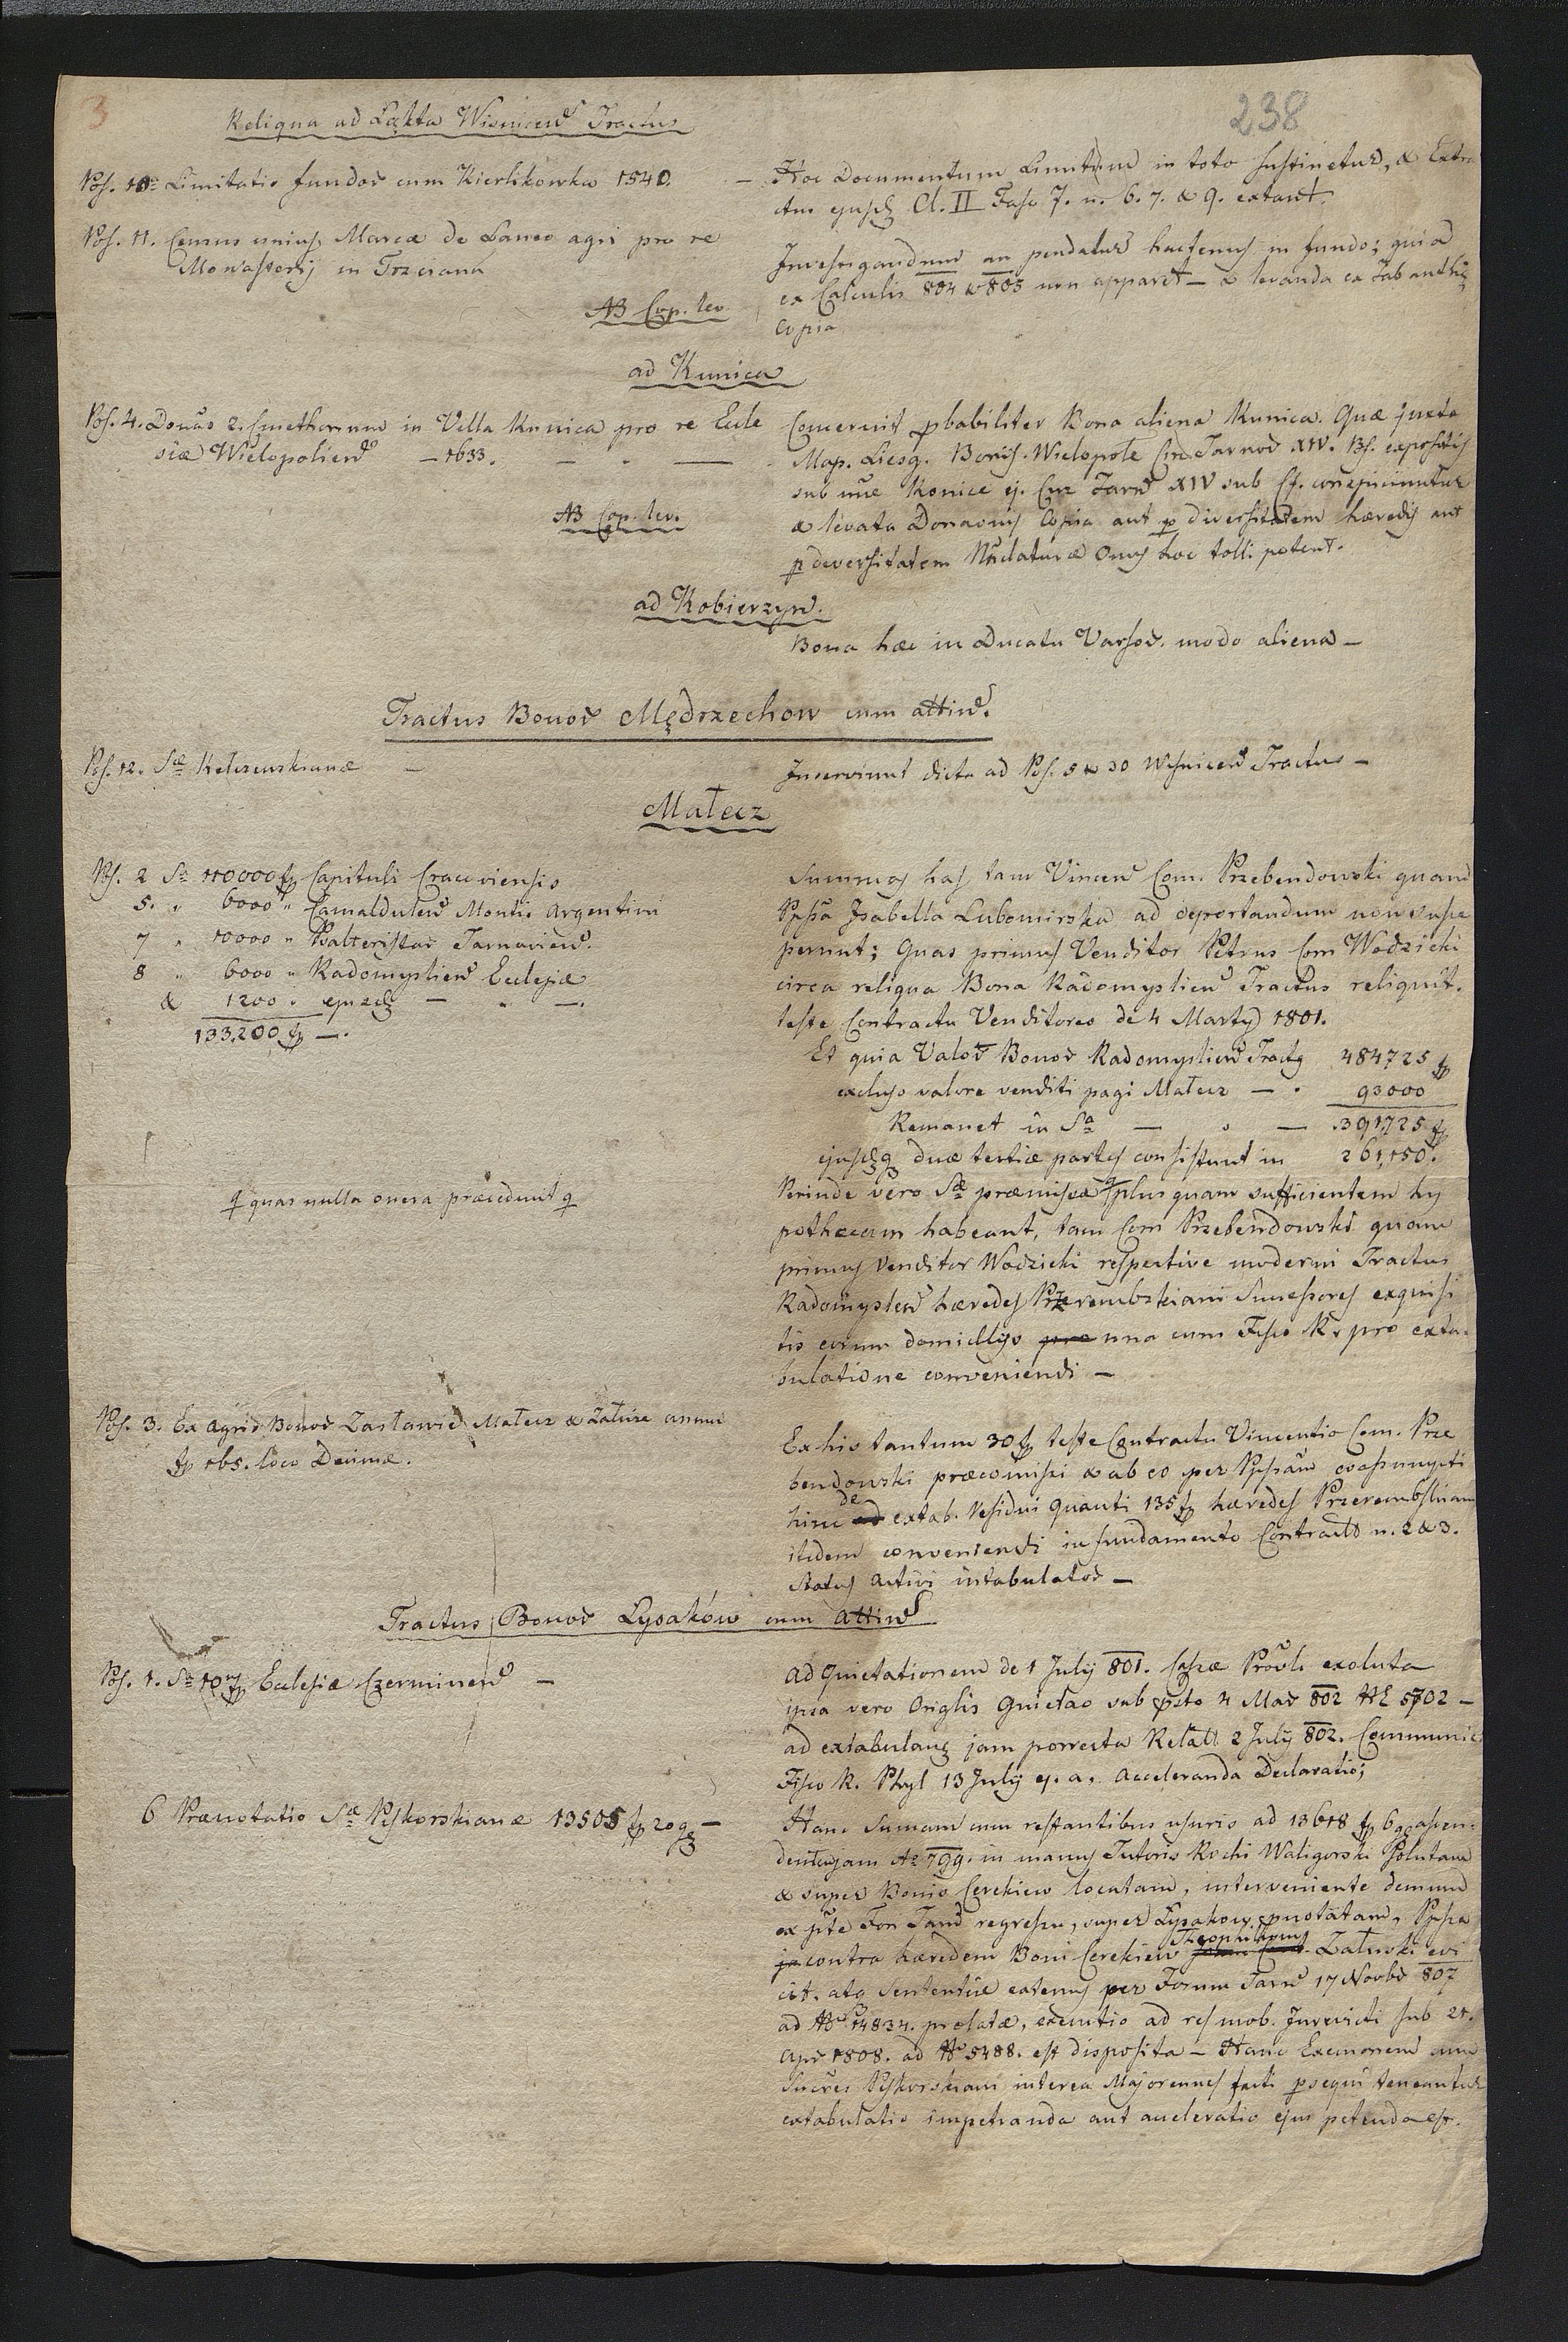 3
238
Reliqua ad Łąkta Wisnicen Tractus
Pos. 10. Limitatio fundor cum Kierlikowka 1540. —
Hoc Documentum Limitum in toto sustinetur, & Extra
ctus ejusd Cl. II Fasc 7. n. 6. 7. & 9. extant.
Pos. 11. Census unius Marcæ de Laneo agri pro re
Monasterij in Trzciana
NB Cop. lev.
Investigandum an pendatur hactenus in fundo; quia
ex Calculis 804 & 805 non apparet — & levanda ex Tab auth
copia
ad Kunica
Pos. 4. Donaō 2. Cmethonum in Villa Kunica pro re Eccle
siæ Wielopolien — 1633. — . —
NB Cop. lev.
Concernit pbabiliter Bona aliena Kunica. Quæ juxta
Map. Liesg. Bonis. Wielopole Circ Tarnov XIV. Bf. expositis
sub nne Konice ej. Circ Tarn XIV sub Cf. conspiciuntur
& levata Donaonis Copia aut p diversitatem hæredis aut
p diversitatem Nnclaturæ Onus hoc tolli potent.
ad Kobierzyn.
Bona hæc in Ducatu Varsov. modo aliena —
Tractus Bonor Mędrzechow cum attin.
Pos. 12. Sæ Ketrzenskianæ —
Inserviunt dicta ad Pos. 5 & 30 Wisnicen Tractus —
Małecz
Pos. 2 Sa 110000 fp Capituli Cracoviensis
5. " 6000 " Camaldulen Montis Argentini
7 " 10000 " Psalteristar Tarnovien.
8 " 6000 " Radomyslien Ecclesiæ
& 1200 " ejusd — " —.
133.200 fp —.
Summas has tam Vincen Com. Przebendowski quam
Ppssa Isabella Lubomirska ad deportandum non susce
perunt; Quas primus Venditor Petrus Com Wodzicki
circa reliqua Bona Radomyslien Tractus reliquit.
teste Contractu Venditoreo de 4 Martij 1801.
Et quia Valor Bonor Radomyslien Tractus 484725 fp
excluso valore venditi pagi Małecz — . 93000
Remanet in Sa — . — 391,725 fp
ejusdq duæ tertiæ partes consistunt in 261,150.
Perinde vero Sæ præmissæ plus quam sufficientem hy
pothecam habeant, tam Com Przebendowski quam
primus Venditor Wodzicki respective moderni Tractus
Radomyslen hæredes Przerembskiani Successores exquisi
tis eorum domiciliis pro una cum Fisco R. pro exta-
bulatione conveniendi —
quas nulla onera præcedunt
Pos. 3. Ex agris Bonor Zasławie Małecz & Zatuze annui
fp 165. loco Decimæ.
Ex his tantum 30 fp teste Contractu Vincentio Com. Prze
bendowski præcomissi & ab eo per Ppssam coassumpti
hinc ad de extab. residui quanti 135 fp hæredes Przerembskiani
itidem conveniendi in fundamento Contractus n. 2 & 3.
Status activi intabulator —
Tractus Bonor Łysaków cum attin
Pos. 1. Sa 10m fp Ecclesiæ Czerminen —
ad Quietationem de 1 July 801. Cassæ Provli exoluta
ipsa vero Origlis Quietao sub psto 4 Mar 802 NE 5702 —
ad extabulang jam porrecta Relatt 2 July 802. Communic
Fisco R. Phyl 13 July ej. a. acceleranda Declaratio;
6 Prænotatio Sæ Piskorskianæ 13505 fp 20 g —
Hanc Summam cum restantibus usuris ad 13618 fp 6 g ascen-
dentem jam Ao 799. in manus Tutoris Rochi Waligorski solutam
& super Bonis Cerekiew locatam, interveniente demum
ex pte Fori Tarn regressu, super Łysakow pnotatam, Ppssa
ja contra hæredem Boni Cerekiew Theophilum Załuski evi
cit. atq Sententiæ eatenus per Forum Tarn 17 Novbr 807
ad No 14834. prolatæ, executio ad res mob. Jurevicti sub 21.
Apr 1808. ad No 5488. est disposita — Hanc Executionem cum
Succres Piskorskiani interea Majorennes facti psequi teneantur
extabulatio impetranda aut acceleratio ejus petenda est.